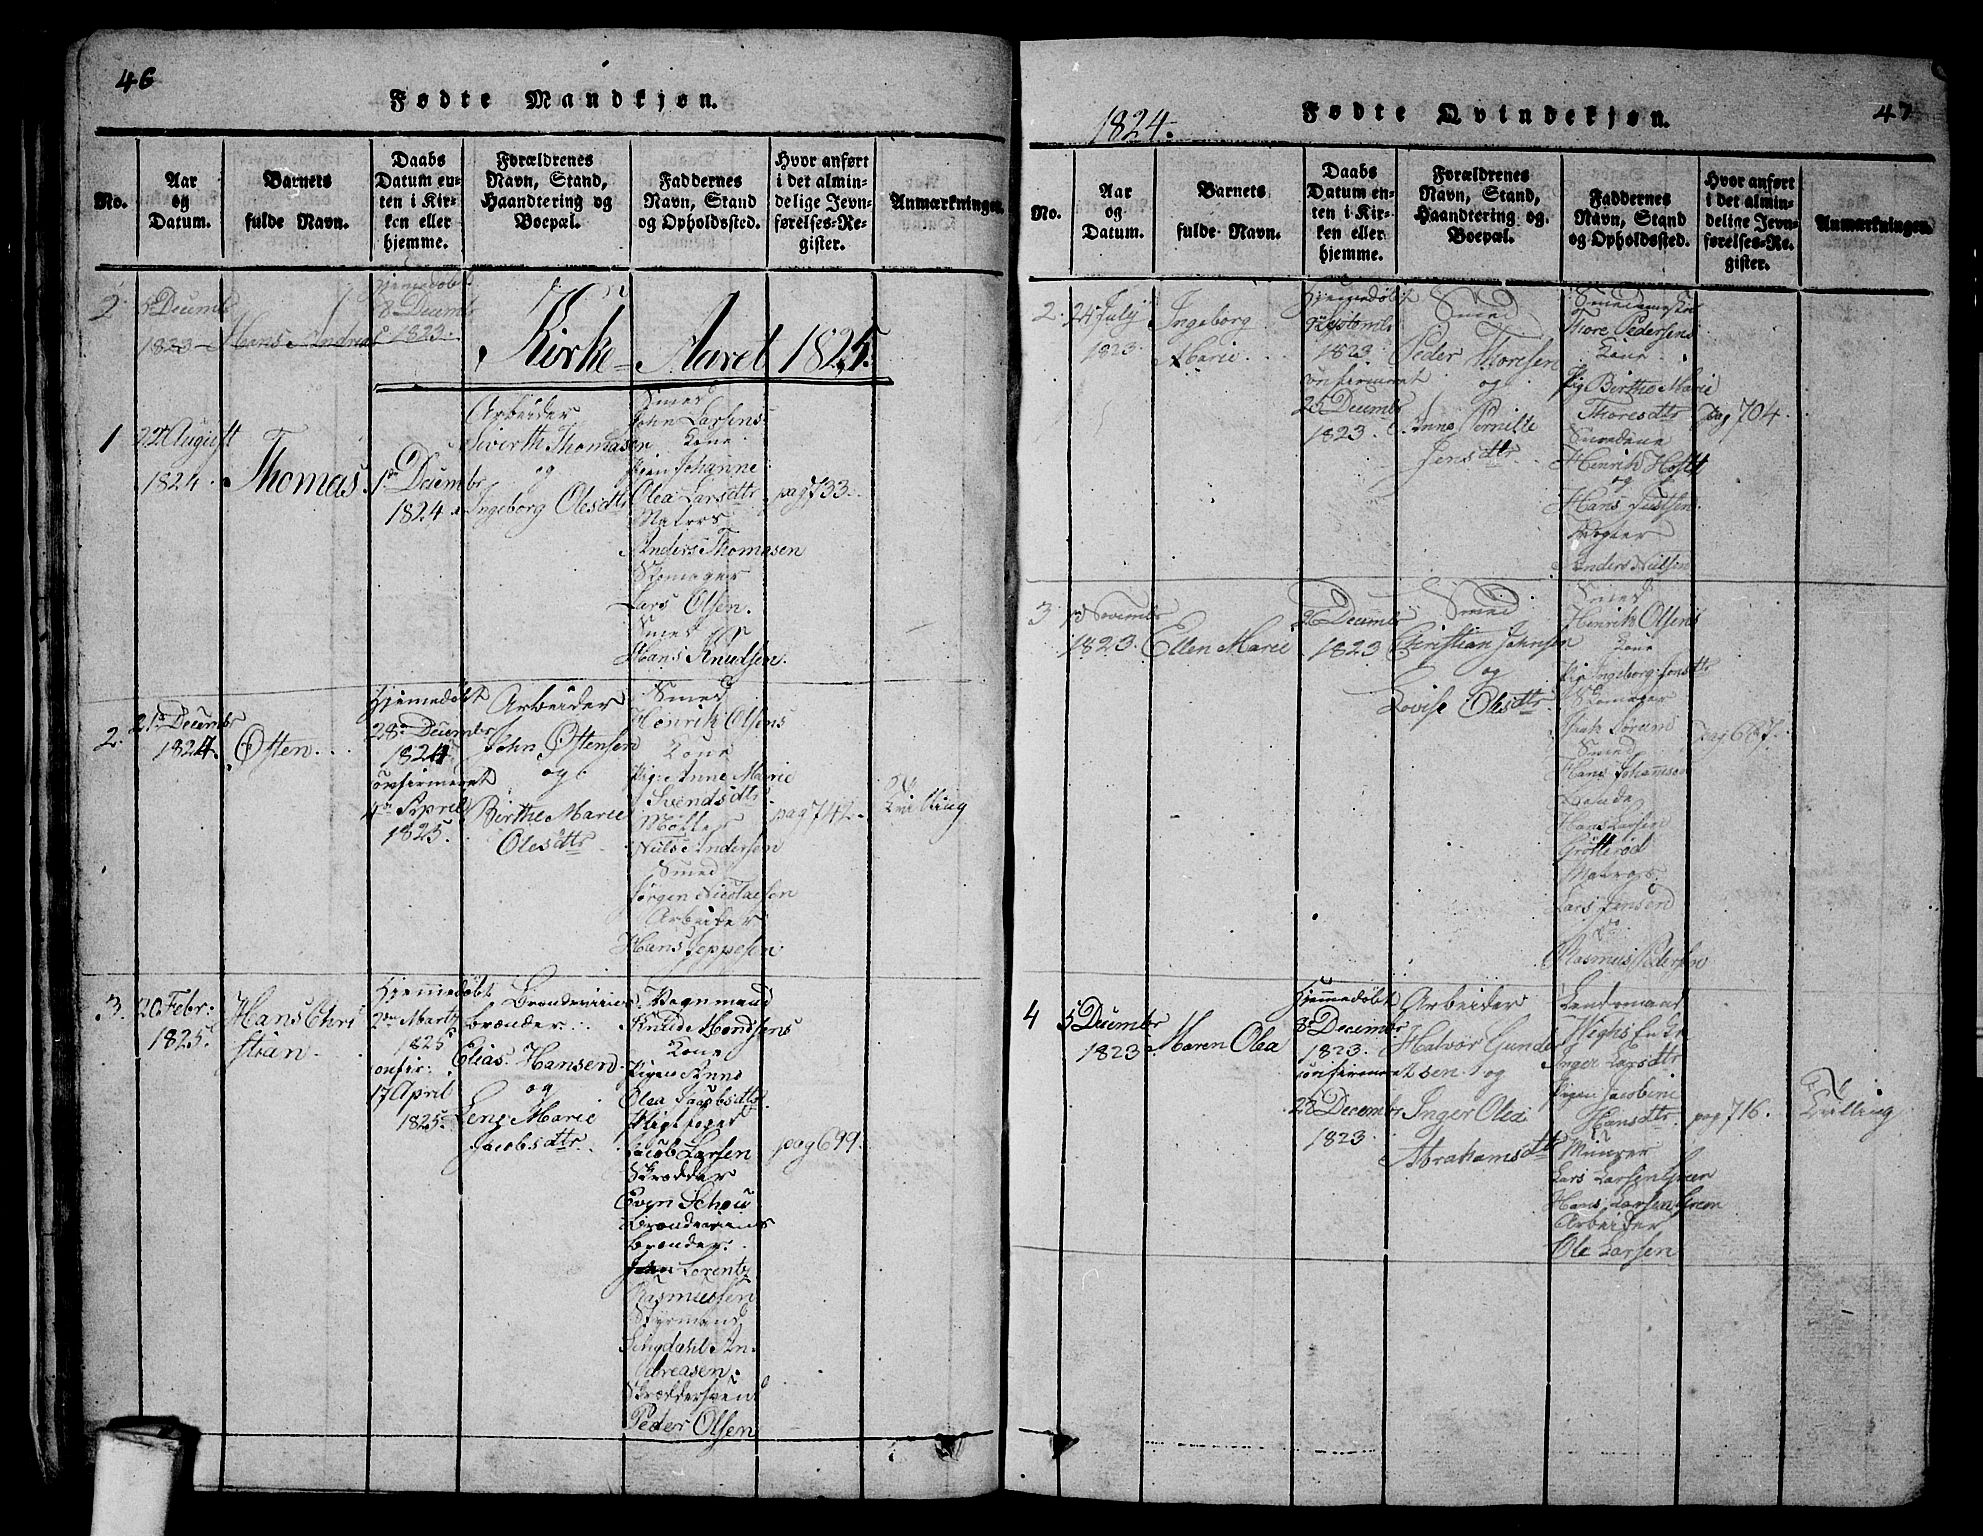 46
Fødte Mandkjøn.
No.
Aar
og
Datum.
Barnets
fulde Navn.
Daabs
Datum en-
ten i Kir-
ken eller
hjemme.
Forældrenes
Navn, Stand,
Haandtering og
Boepæl.
Faddernes
Navn, Stand
og Opholdssted.
Hvor anført
i det almin-
delige Jevn-
førelses-Re-
gister.
Anmærkninger.
2
5 Decembr
1823
Hans Andreas
hjemedøbt
8 Decembr
1823.
Kirke-Aaret 1825.
1
22 August
1824.
Thomas
1ste Decembr
1824.
Arbeider
Sivert Thomasen
og
Ingeborg Olesdtr
Smed
John Larsens
Kone
Pigen Johanne
Olea Larsdtr
Matros
Anders Thomasen
Skomager
Lars Olsen.
Smed
Hans Knudsen.
pag 733.
2.
21de Decembr
1824.
Østen.
Hjemedøbt
28de Decembr
1824
confirmeret
4de April
1825.
Arbeider
John Østensen
og
Birthe Marie
Olesdtr
Smed
Henrik Olsens
Kone
Pig: Anne Marie
Svendsdtr
Møller
Niels Andersen
Smed
Jørgen Nicolaisen
Arbeider
Hans Jeppesen
pag 742.
Tvilling
3.
20 Febr:
1825.
Hans Chri
stian
Hjemmedøbt
2den Martz
1825
confir:
17 April
1825.
Brændeviins
brænder
Elias Hansen
og
Lene Marie
Jacobsdtr
Vognmand
Knud Mondsens
Kone
Pigen Anne
Olea Jacobsdtr
Pligtfoget
Jacob Larsen
Skrædder
Even Schou
Brændeviens
brænder
John Lorentz
Rasmussen
Styrmand
An-
dreasen.
Skræddersvend
Peder Olsen
pag 699.
1824.
Fødte Qvindekjøn.
47
No.
Aar
og
Datum.
Barnets
fulde Navn.
Daabs
Datum en-
ten i Kir-
ken eller
hjemme.
Forældrenes
Navn, Stand,
Haandtering og.
Boepæl.
Faddernes
Navn, Stand
og Opholdssted.
Hvor anført
i det almin-
delige Jevn-
førelses-Re-
gister.
Anmærkninger.
2.
24 Julij
1823.
Ingeborg
Marie
Hjemedøbt
Septembr
1823.
confirmeret
26 Decembr
1823.
Smed
Peder Thoresen
og
Anne Pernille
Jensdtr
Thore Pedersens
Kone
Pig Birthe Marie
Thoresdtr
Smedene
Henrik Holst
og
Hans Justsen
Vægter
Anders Nielsen
pag 704.
3.
Novembr
1823.
Ellen Marie
26 Decembr
1823
Smed
Christian Johnsen
og
Lovise Olesdtr
Smed
Henrik Olsens
Kone
Pig Ingeborg Jensdtr
Skomager
Smed
Hans Johannsen
Bonde
Hans Larsen
Grøtterød
Matros
Lars Jensen
og
Rasmus Pedersen
pag 687.
4
5 Decembr
1823
Maren Olea
Hjemmedøbt
8 Decembr
1823.
confirmeret
28 Decembr
1823.
Arbeider
Halvor Gunder
sen og
Inger Olea
Abrahamsdtr
Landmand
Inger Larsdtr
Pigen Jacobine
Hansdtr
Murer
Lars Larsen Green
Hans Larsen Green
Arbeider
Ole Larsen
pag 716.
Tvilling